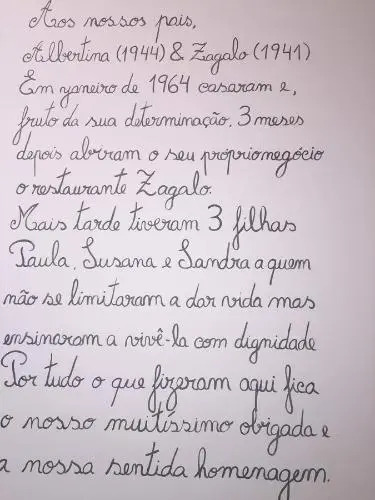 Aos nossos pais,
Albertina (1944) & Zagalo (1941)
Em yaneiro de 1964 casaram e,
fruto da sua determinação, 3 meses
depois abriram o seu próprio negócio
o restaurante Zagalo.
Mais tarde tiveram 3 filhas
Paula, Susana e Sandra a quem
não se limitaram a dar vida mas
ensinaram a vivê-la com dignidade
Por tudo o que fizeram aqui fica
o nosso muitíssimo obrigada e
a nossa sentida homenagem.